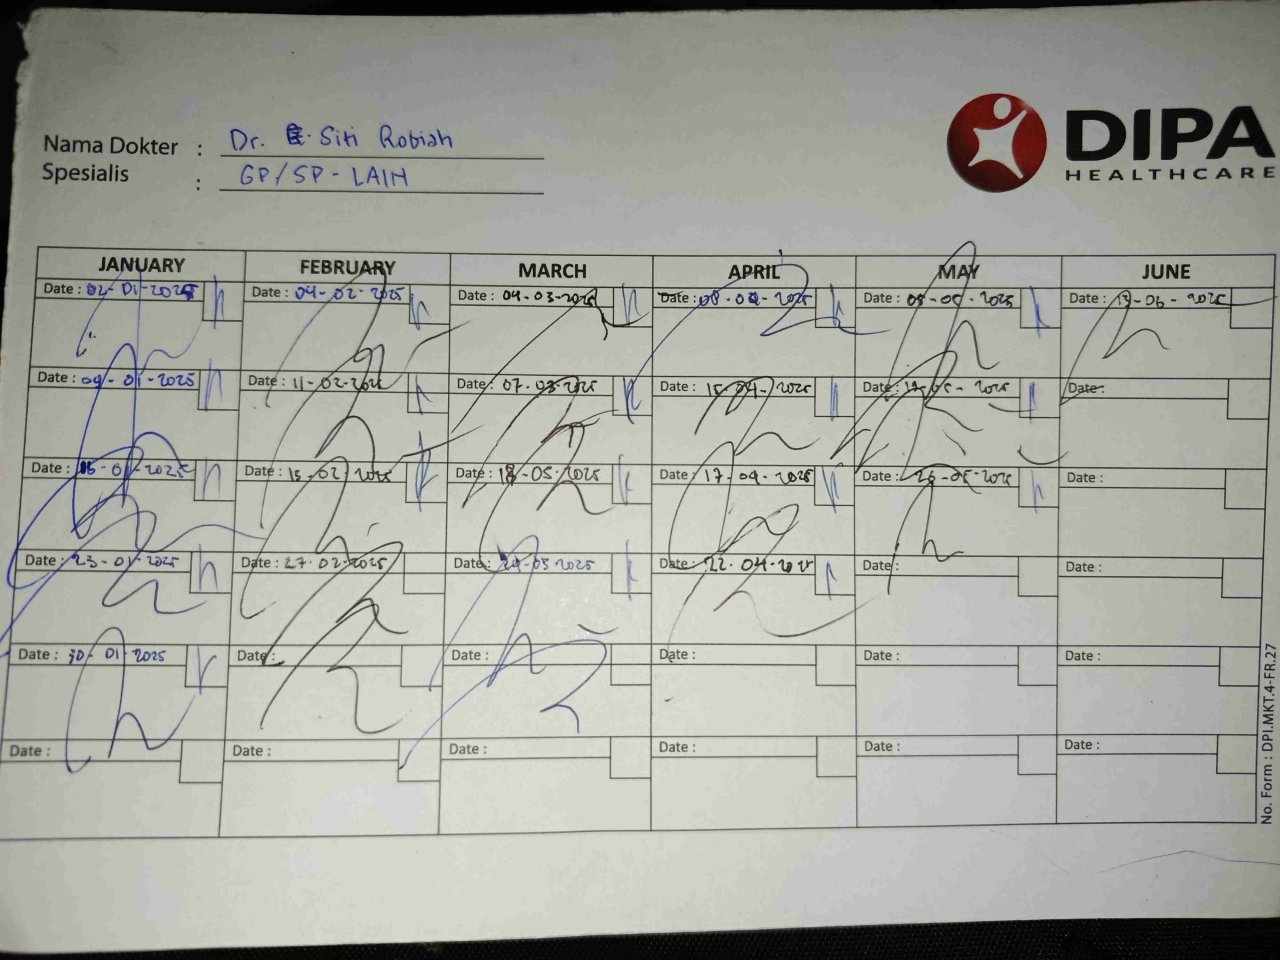 Nama Dokter : Dr. Siti Robiah
Spesialis : GP/SP-LAIN
DIPA
HEALTHCARE
JANUARY FEBRUARY MARCH APRIL MAY JUNE
Date : 02-01-2025 Date : 04-02-2025 Date : 04-03-2025 Date : 08-04-2025 Date : 05-2025 Date : 13-06-2025
Date : 09-01-2025 Date : 11-02-2025 Date : 07-03-2025 Date : 15-04-2025 Date : 05-2025 Date :
Date : 16-01-2025 Date : 13-02-2025 Date : 18-03-2025 Date : 17-04-2025 Date : 05-2025 Date :
Date : 23-01-2025 Date : 27-02-2025 Date : 03-2025 Date : 22-04-2025 Date : Date :
Date : 30-01-2025 Date : Date : Date : Date : Date :
Date : Date : Date : Date : Date : Date :
No. Form : DPI.MKT.4-FR.27